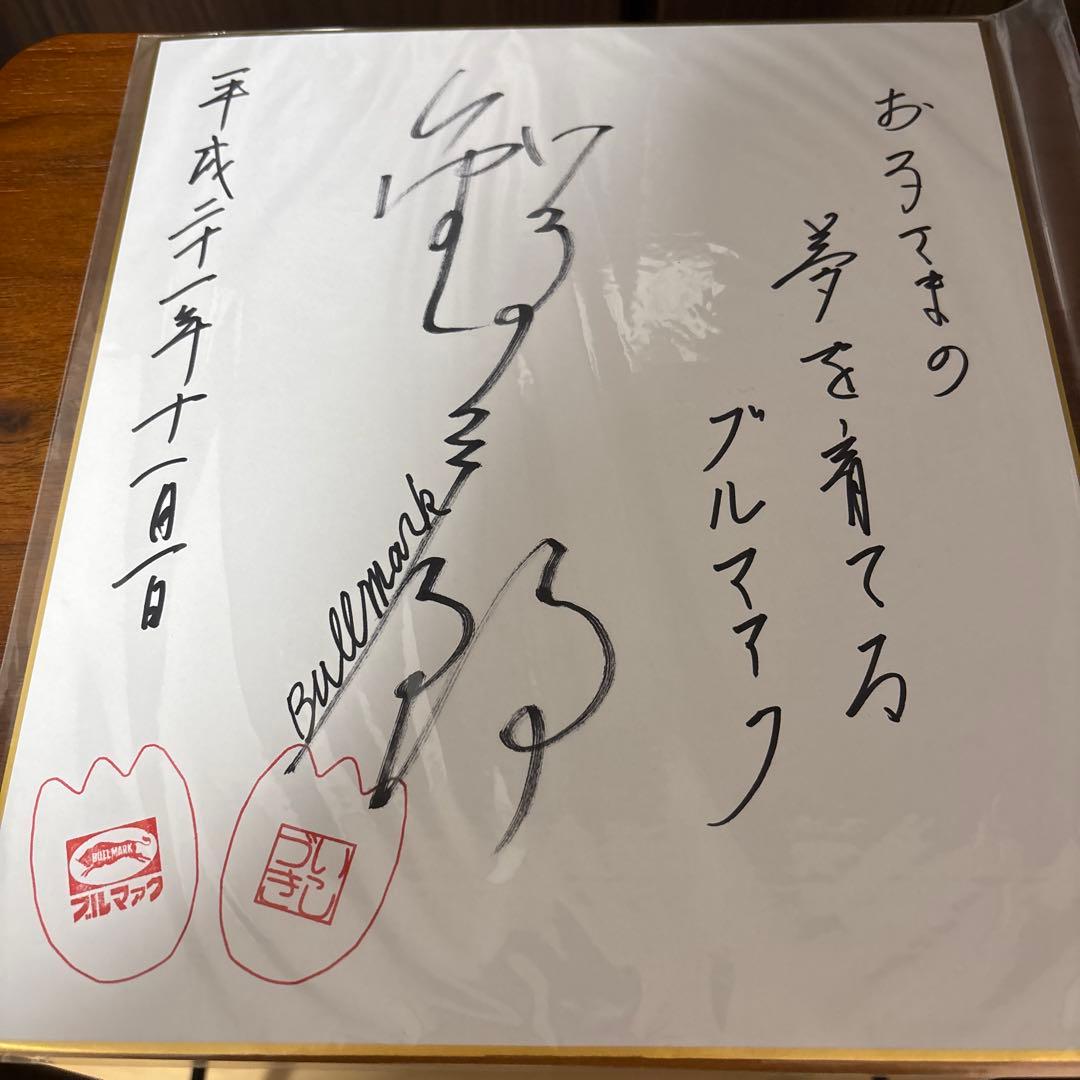 お子さまの
夢を育てる
ブルマァク
Bullmark
平成二十一年十一月一日
BULLMARK
ブルマァク
いしづき